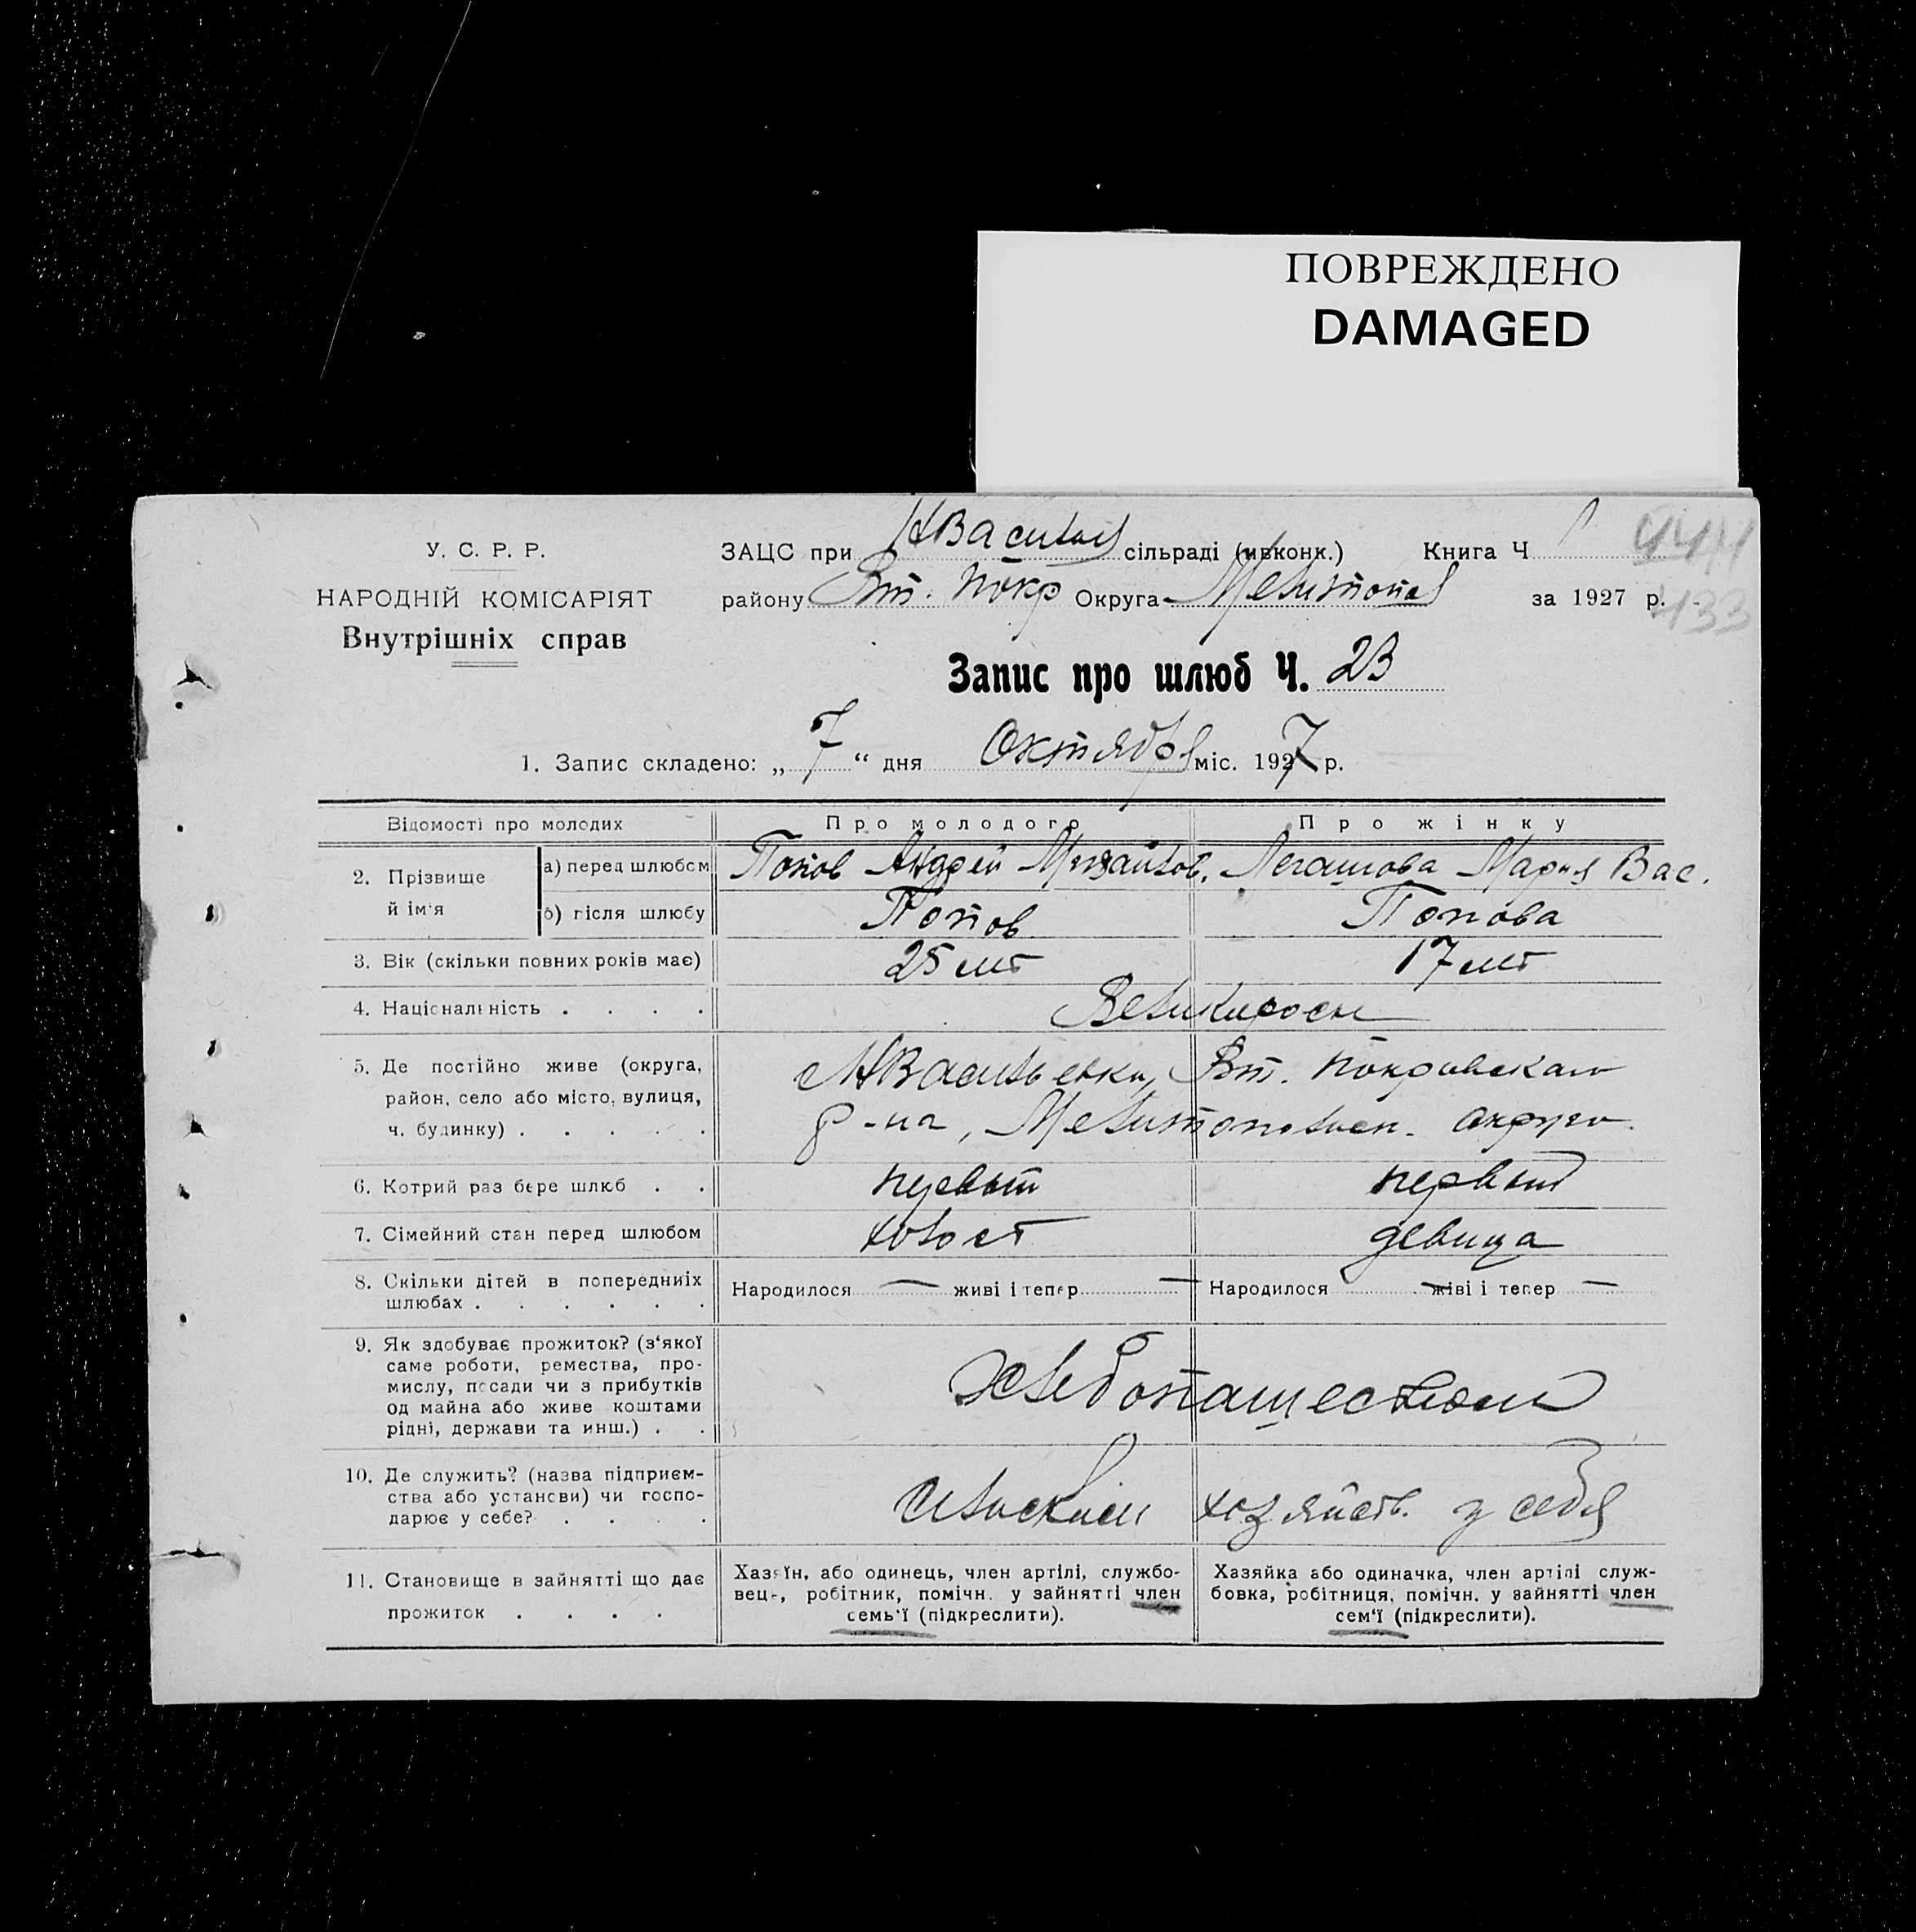 ПОВРЕЖДЕНО
DAMAGED
У. С. Р. Р.
НАРОДНІЙ КОМІСАРІЯТ
Внутрішніх справ
ЗАЦС при НВасильев сільраді (ивконк.) Книга Ч 444
району Вт. Покр Округа Мелитопол за 1927 р. 433
Запис про шлюб Ч. 23
1. Запис складено: „7“ дня Октября міс. 1927 р.
Відомості про молодих
Про молодого
Про жінку
2. Прізвище й ім'я
а) перед шлюбом
Попов Андрей Михайлов.
Легашова Мария Вас.
б) після шлюбу
Попов
Попова
3. Вік (скільки повних років має)
25 лет
17 лет
4. Національність . . . .
Великоросы
5. Де постійно живе (округа,
район, село або місто, вулиця,
ч. будинку) . . . . .
НВасильевки, Вт. Покровского
р-на, Мелитопольск. округа.
6. Котрий раз бере шлюб . .
первый
первый
7. Сімейний стан перед шлюбом
холост
девица
8. Скільки дітей в попередниіх
шлюбах . . . . . .
Народилося — живі і тепер —
Народилося — живі і тепер —
9. Як здобуває прожиток? (з'якої
саме роботи, ремества, про-
мислу, посади чи з прибутків
од майна або живе коштами
рідні, держави та инш.) . .
Хлебопашеством
10. Де служить? (назва підприєм-
ства або установи) чи госпо-
дарює у себе? . . . .
сельским хозяйств. у себя
11. Становище в зайнятті що дає
прожиток . . . .
Хазяїн, або одинець, член артілі, службо-
вець, робітник, помічн. у зайнятті член
семь'ї (підкреслити).
Хазяйка або одиначка, член артілі служ-
бовка, робітниця, помічн. у зайнятті член
сем'ї (підкреслити).